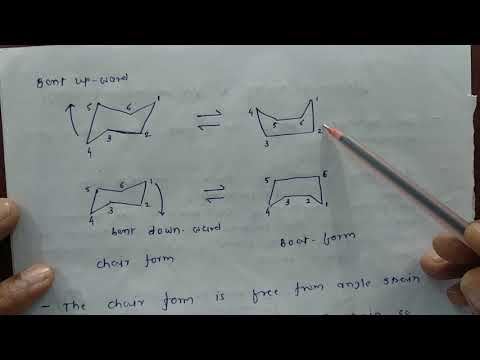 Bent up-ward
5 6 1 4 3 2 ⇌ 4 5 6 1 3 2
5 6 1 4 3 2 ⇌ 5 6 4 3 2 1
bent down-ward
Boat-form
chair form
- The chair form is free from angle strain
so